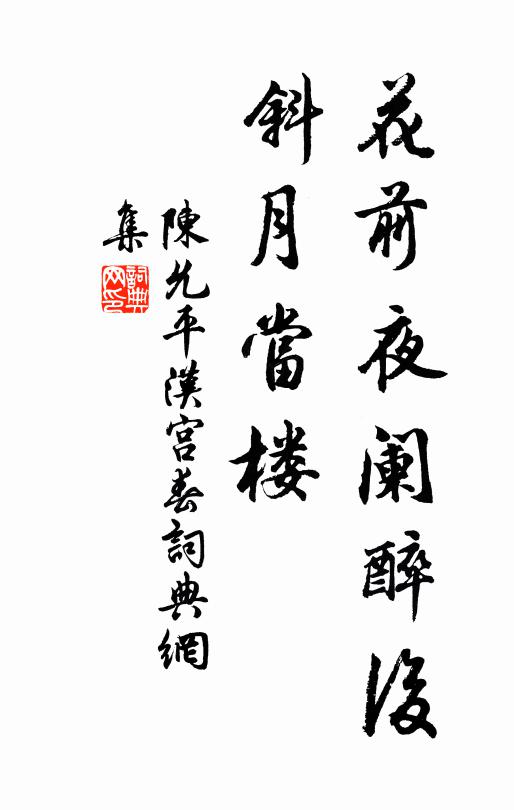 花前夜阑醉後
斜月當楼
陳允平漢宮春詞典網
集
詞典
网印